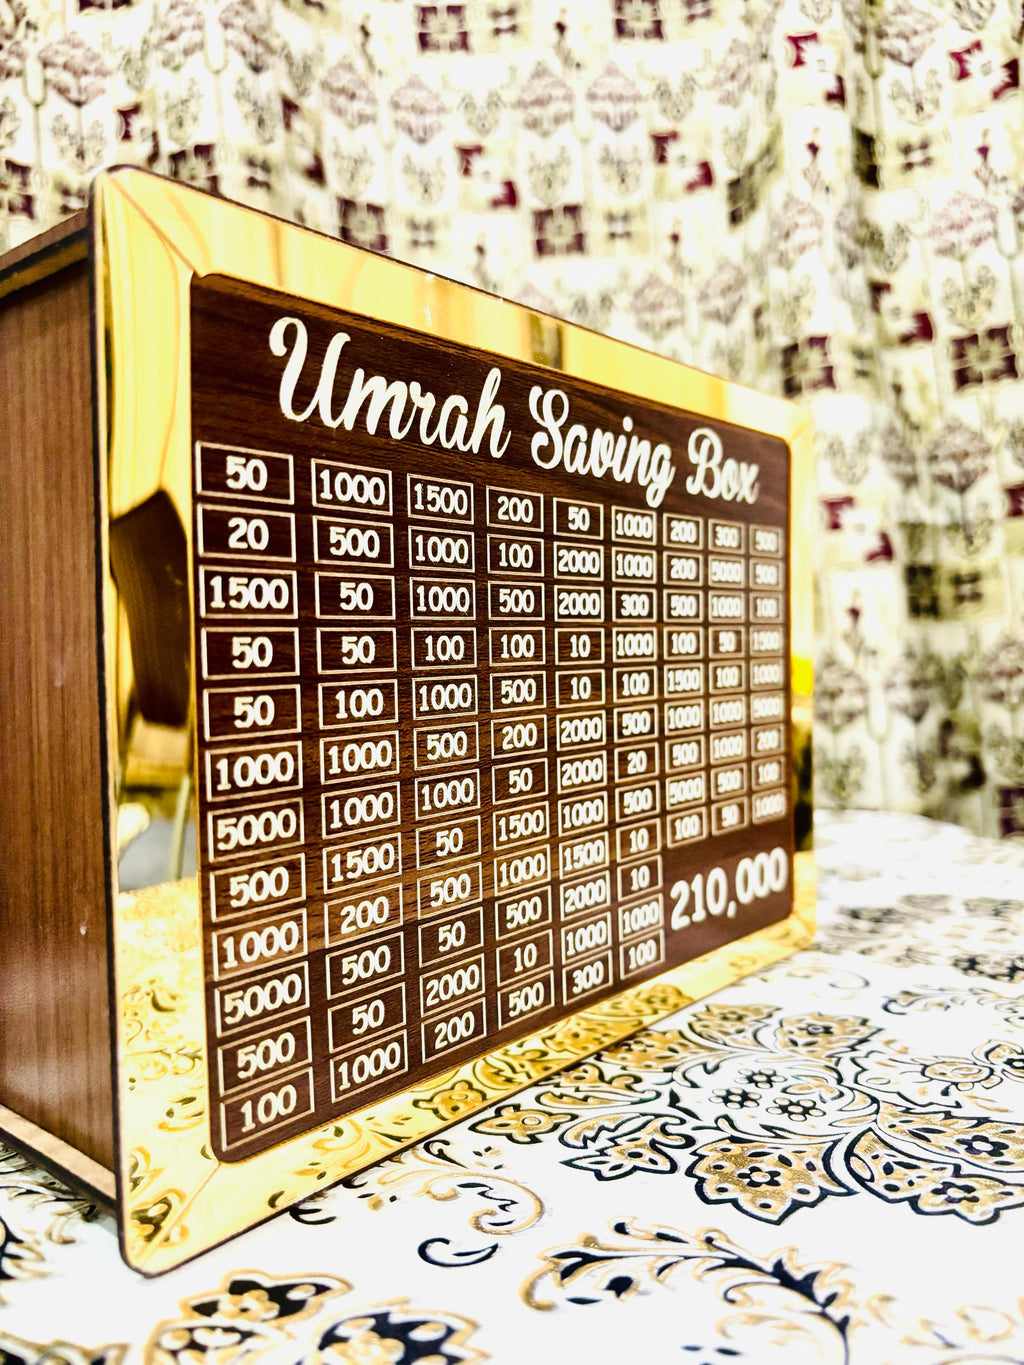 Umrah Saving Box
50 1000 1500 200 50 1000 200 300 500
20 500 1000 100 2000 1000 200 5000 500
1500 50 1000 500 2000 300 500 1000 100
50 50 100 100 10 1000 100 50 1500
50 100 1000 500 10 100 1500 100 1000
1000 1000 500 200 2000 500 1000 1000 5000
5000 1000 1000 50 2000 20 500 1000 200
500 1500 50 1500 1000 500 5000 500 100
1000 200 500 1000 1500 10 100 50 1000
5000 500 50 500 2000 10
500 50 2000 10 1000 1000
100 1000 200 500 300 100
210,000